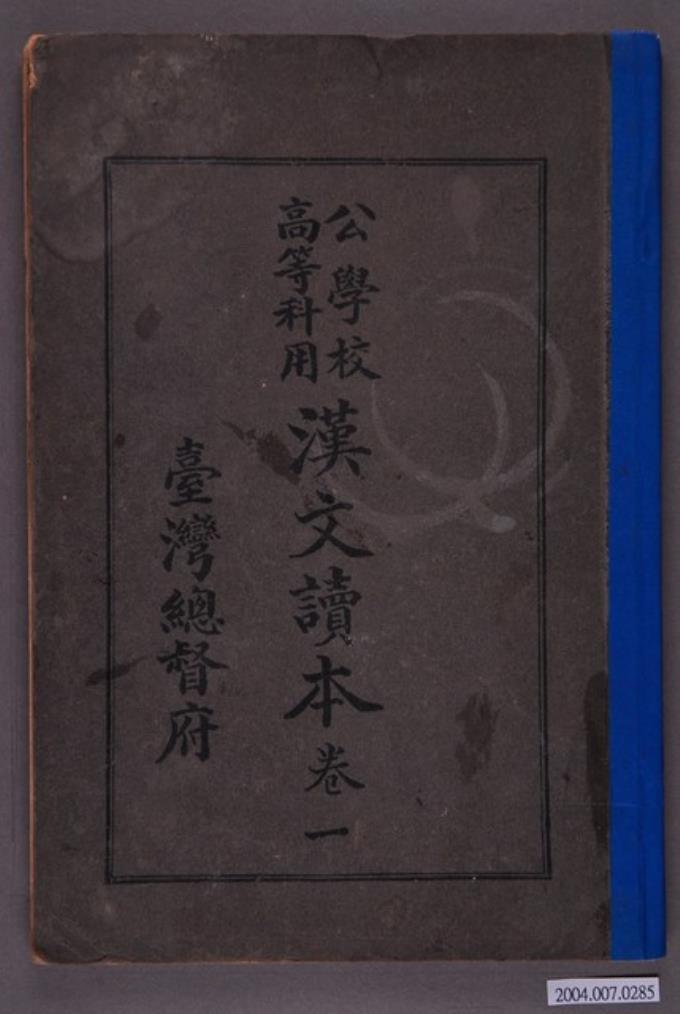 公學校
高等科用
漢文讀本卷一
臺灣總督府
2004.007.0285